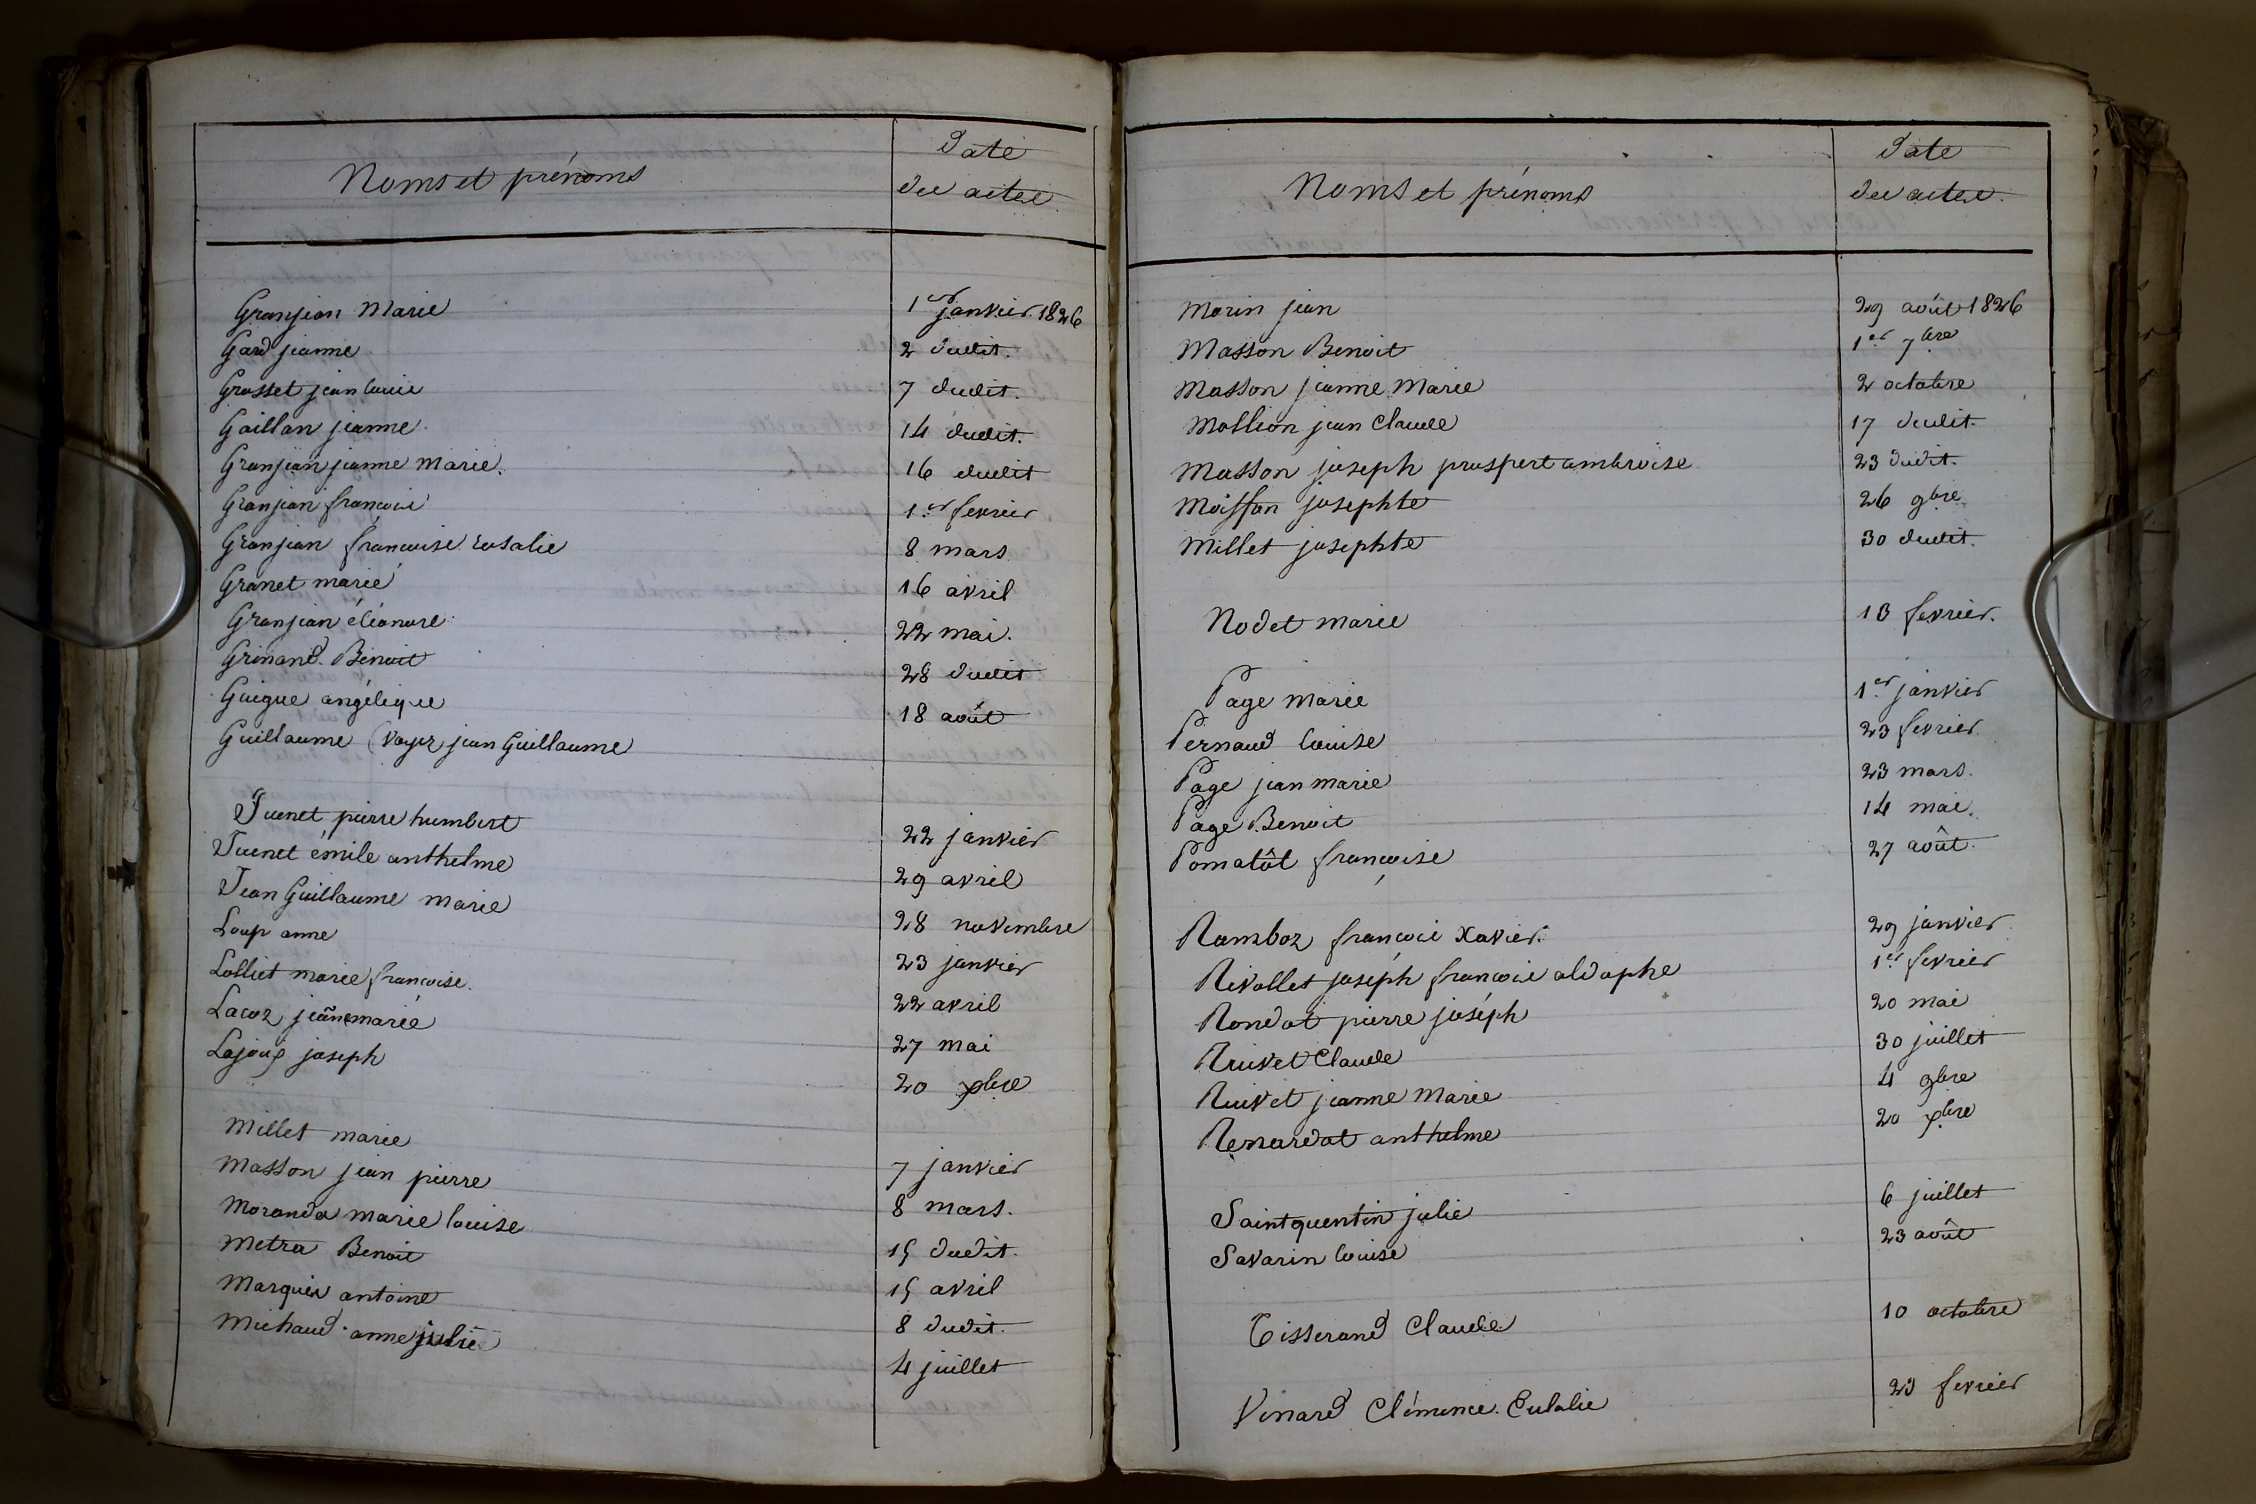 Noms et prénoms
Date
des actes
Granjean Marie 1er janvier 1826
Gard jeanne 2 dudit.
Grosset jean louis 7 dudit.
Gaillan jeanne 14 dudit.
Granjean jeanne Marie. 16 dudit
Granjean françois 1.er fevrier
Granjean françoise rosalie 8 mars
Granet marie 16 avril
Granjean éléonore 22 mai.
Grinand Benoit 28 dudit
Guigue angélique 18 août
Guillaume (voyez jean Guillaume
Juenet pierre humbert 22 janvier
Juenet émile anthelme 29 avril
Jean Guillaume marie 28 novembre
Loup anne 23 janvier
Lolliet marie françoise. 22 avril
Lacoz jeanemarie 27 mai
Lajoux joseph 20 xbre
Millet marie 7 janvier
Masson jean pierre 8 mars.
Moranda marie louise 15 dudit.
Metra Benoit 15 avril
Marquis antoine 8 dudit.
Michaud anne julie 4 juillet
Noms et prénoms
Date
des actes.
Morin jean 29 août 1826
Masson Benoit 1er 7bre
Masson jeanne Marie 2 octobre
Mollion jean Claude 17 dudit.
Masson joseph prospert ambroise 23 dudit.
Moisson josephte 26 9bre
Millet josephte 30 dudit.
Nodet marie 13 fevrier.
Page marie 1er janvier
Pernaud louise 23 fevrier
Page jean marie 23 mars.
Page Benoit 14 mai.
Pomatôt françoise 27 août.
Ramboz françois Xavier. 29 janvier
Rivollet joseph françois aldophe 1er fevrier
Rondot pierre joseph 20 mai
Ruivet Claude 30 juillet
Ruivet jeanne Marie 4 9bre
Renardat anthelme 20 xbre
Saintquentin julie 6 juillet
Savarin louise 23 août
Tisserand Claude 10 octobre
Vinard Clémence Eulalie 23 fevrier